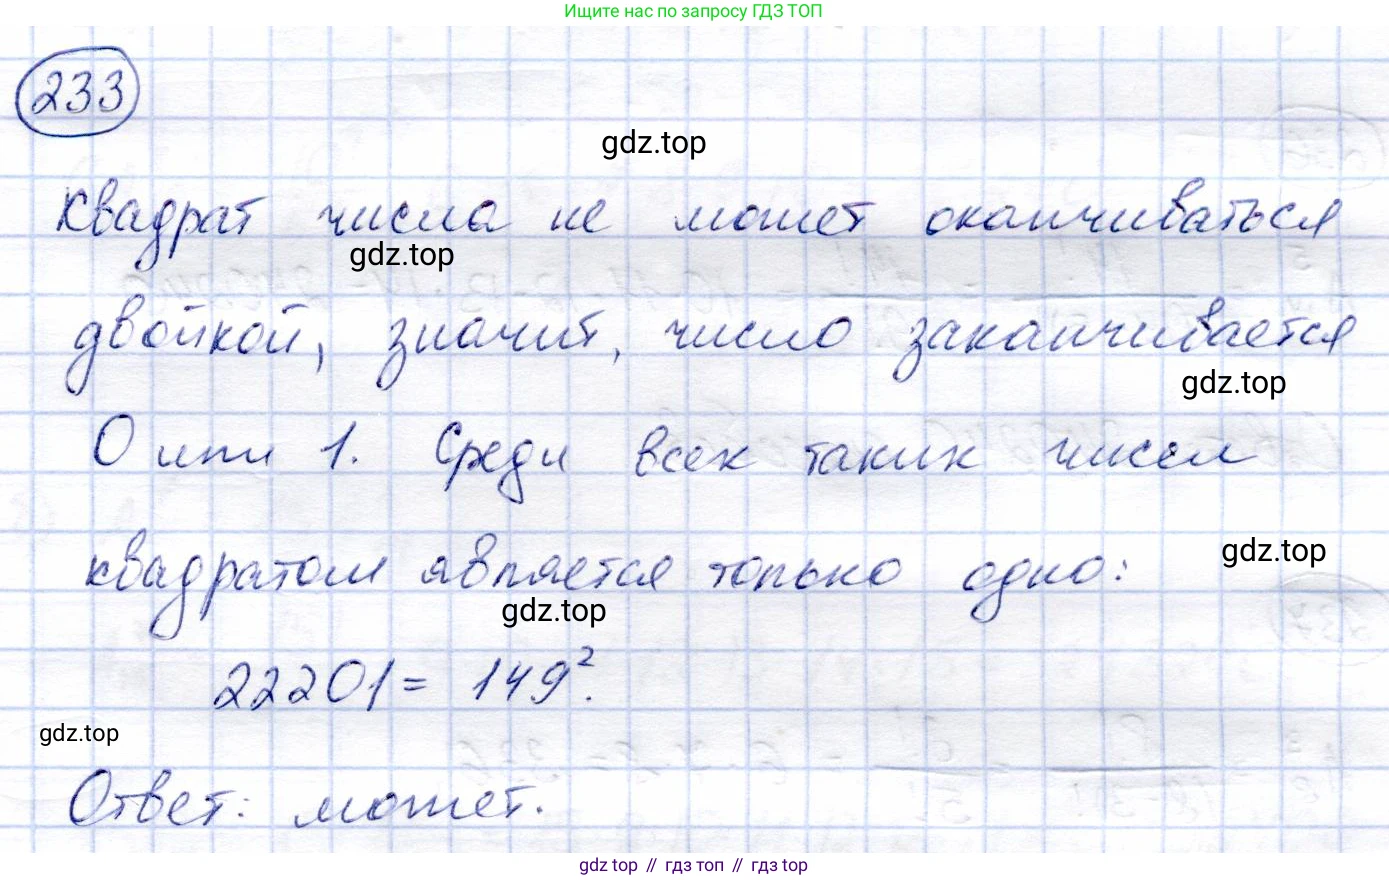 Ищите нас по запросу ГДЗ ТОП
233
gdz.top
Квадрат числа не может оканчиваться
gdz.top
двойкой, значит, число заканчивается
gdz.top
0 или 1. Среди всех таких чисел
gdz.top
квадратом является только одно:
gdz.top
22201 = 149².
gdz.top
Ответ: может.
gdz top // гдз топ // гдз top